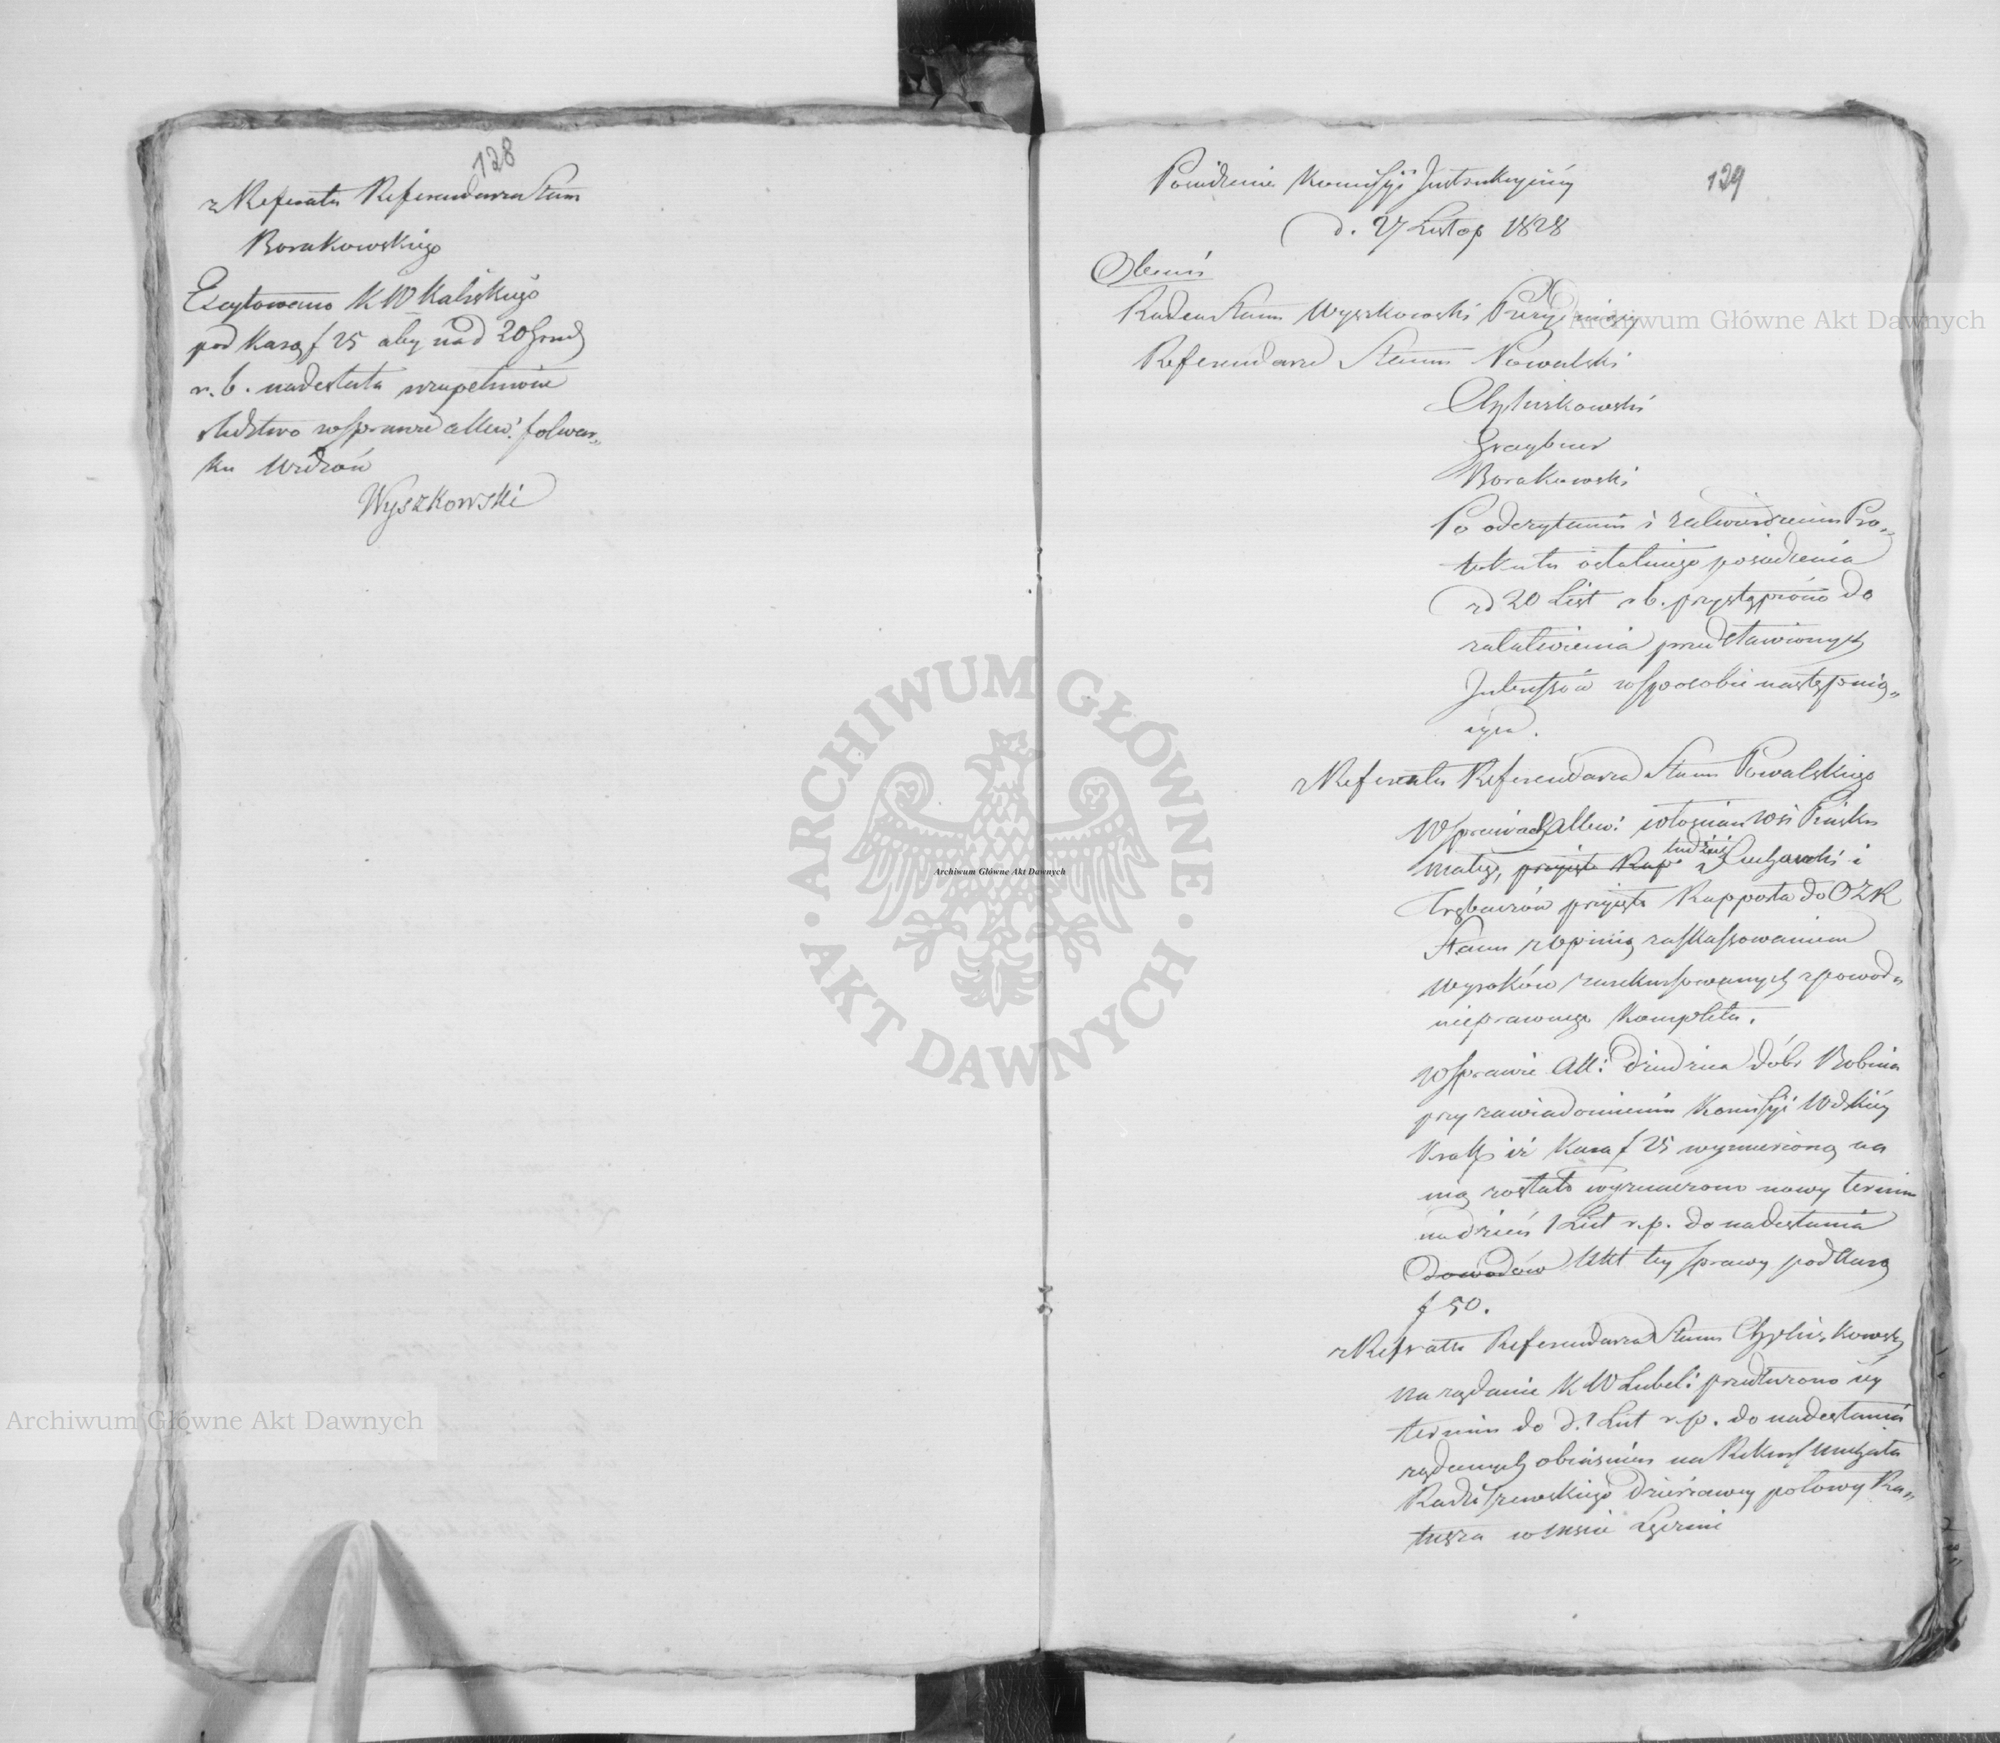 128
z Referatu Referendarza Stanu
Borakowskiego
Excytowano K W Kaliskiego
pod karą f 25 aby nad 20 Grud
r. b. nadesłała uzupełnione
śledztwo w sprawie allew: folwar„
ku
Wyszkowski
129
Posiedzenie Kommissyi Instrukcyiney
d. 27 Listop 1828
Obecni
Radca Stanu Wyszkowski Prezyduiący
Referendarze Stanu Nowalski
Chyliczkowski
Graybner
Borakowski
Po odczytaniu i zatwierdzeniu Pro„
tokułu ostatniego posiedzenia
z d 20 List r b. przystąpiono do
załatwienia przedstawionych
Interessów w sposobie następuią„
cym.
z Referatu Referendarza Stanu Powalskiego
W sprawach allew: włościan wsi
małey, przyięte Rap tudzież i
przyięte Rapporta do OZR
Stanu z Opinią za skassowaniem
wyroków zarekursowanych z powodu
nieprawnego Kompletu.
w sprawie all: dziedzica dóbr Bobina
przy zawiadomieniu Kommissyi Wdzkiey
Krak iż kara f 25 wymierzoną na
nią zostało wyznaczono nowy termin
na dzień 1 List r. p. do nadesłania
dowodów Akt tey sprawy pod karą
f 50.
z Referatu Referendarza Stanu Chyliczkowsk
na żądanie K W Lubel: przedłużono iey
termin do d. 1 List r. p. do nadesłania
żądanych obiaśnień na Rekurs Michała
Radziszewskiego Dzierżawcy połowy Ra„
tusza w mieście Łęczni
Archiwum Główne Akt Dawnych
Archiwum Główne Akt Dawnych
Archiwum Główne Akt Dawnych
ARCHIWUM GŁÓWNE · AKT DAWNYCH ·